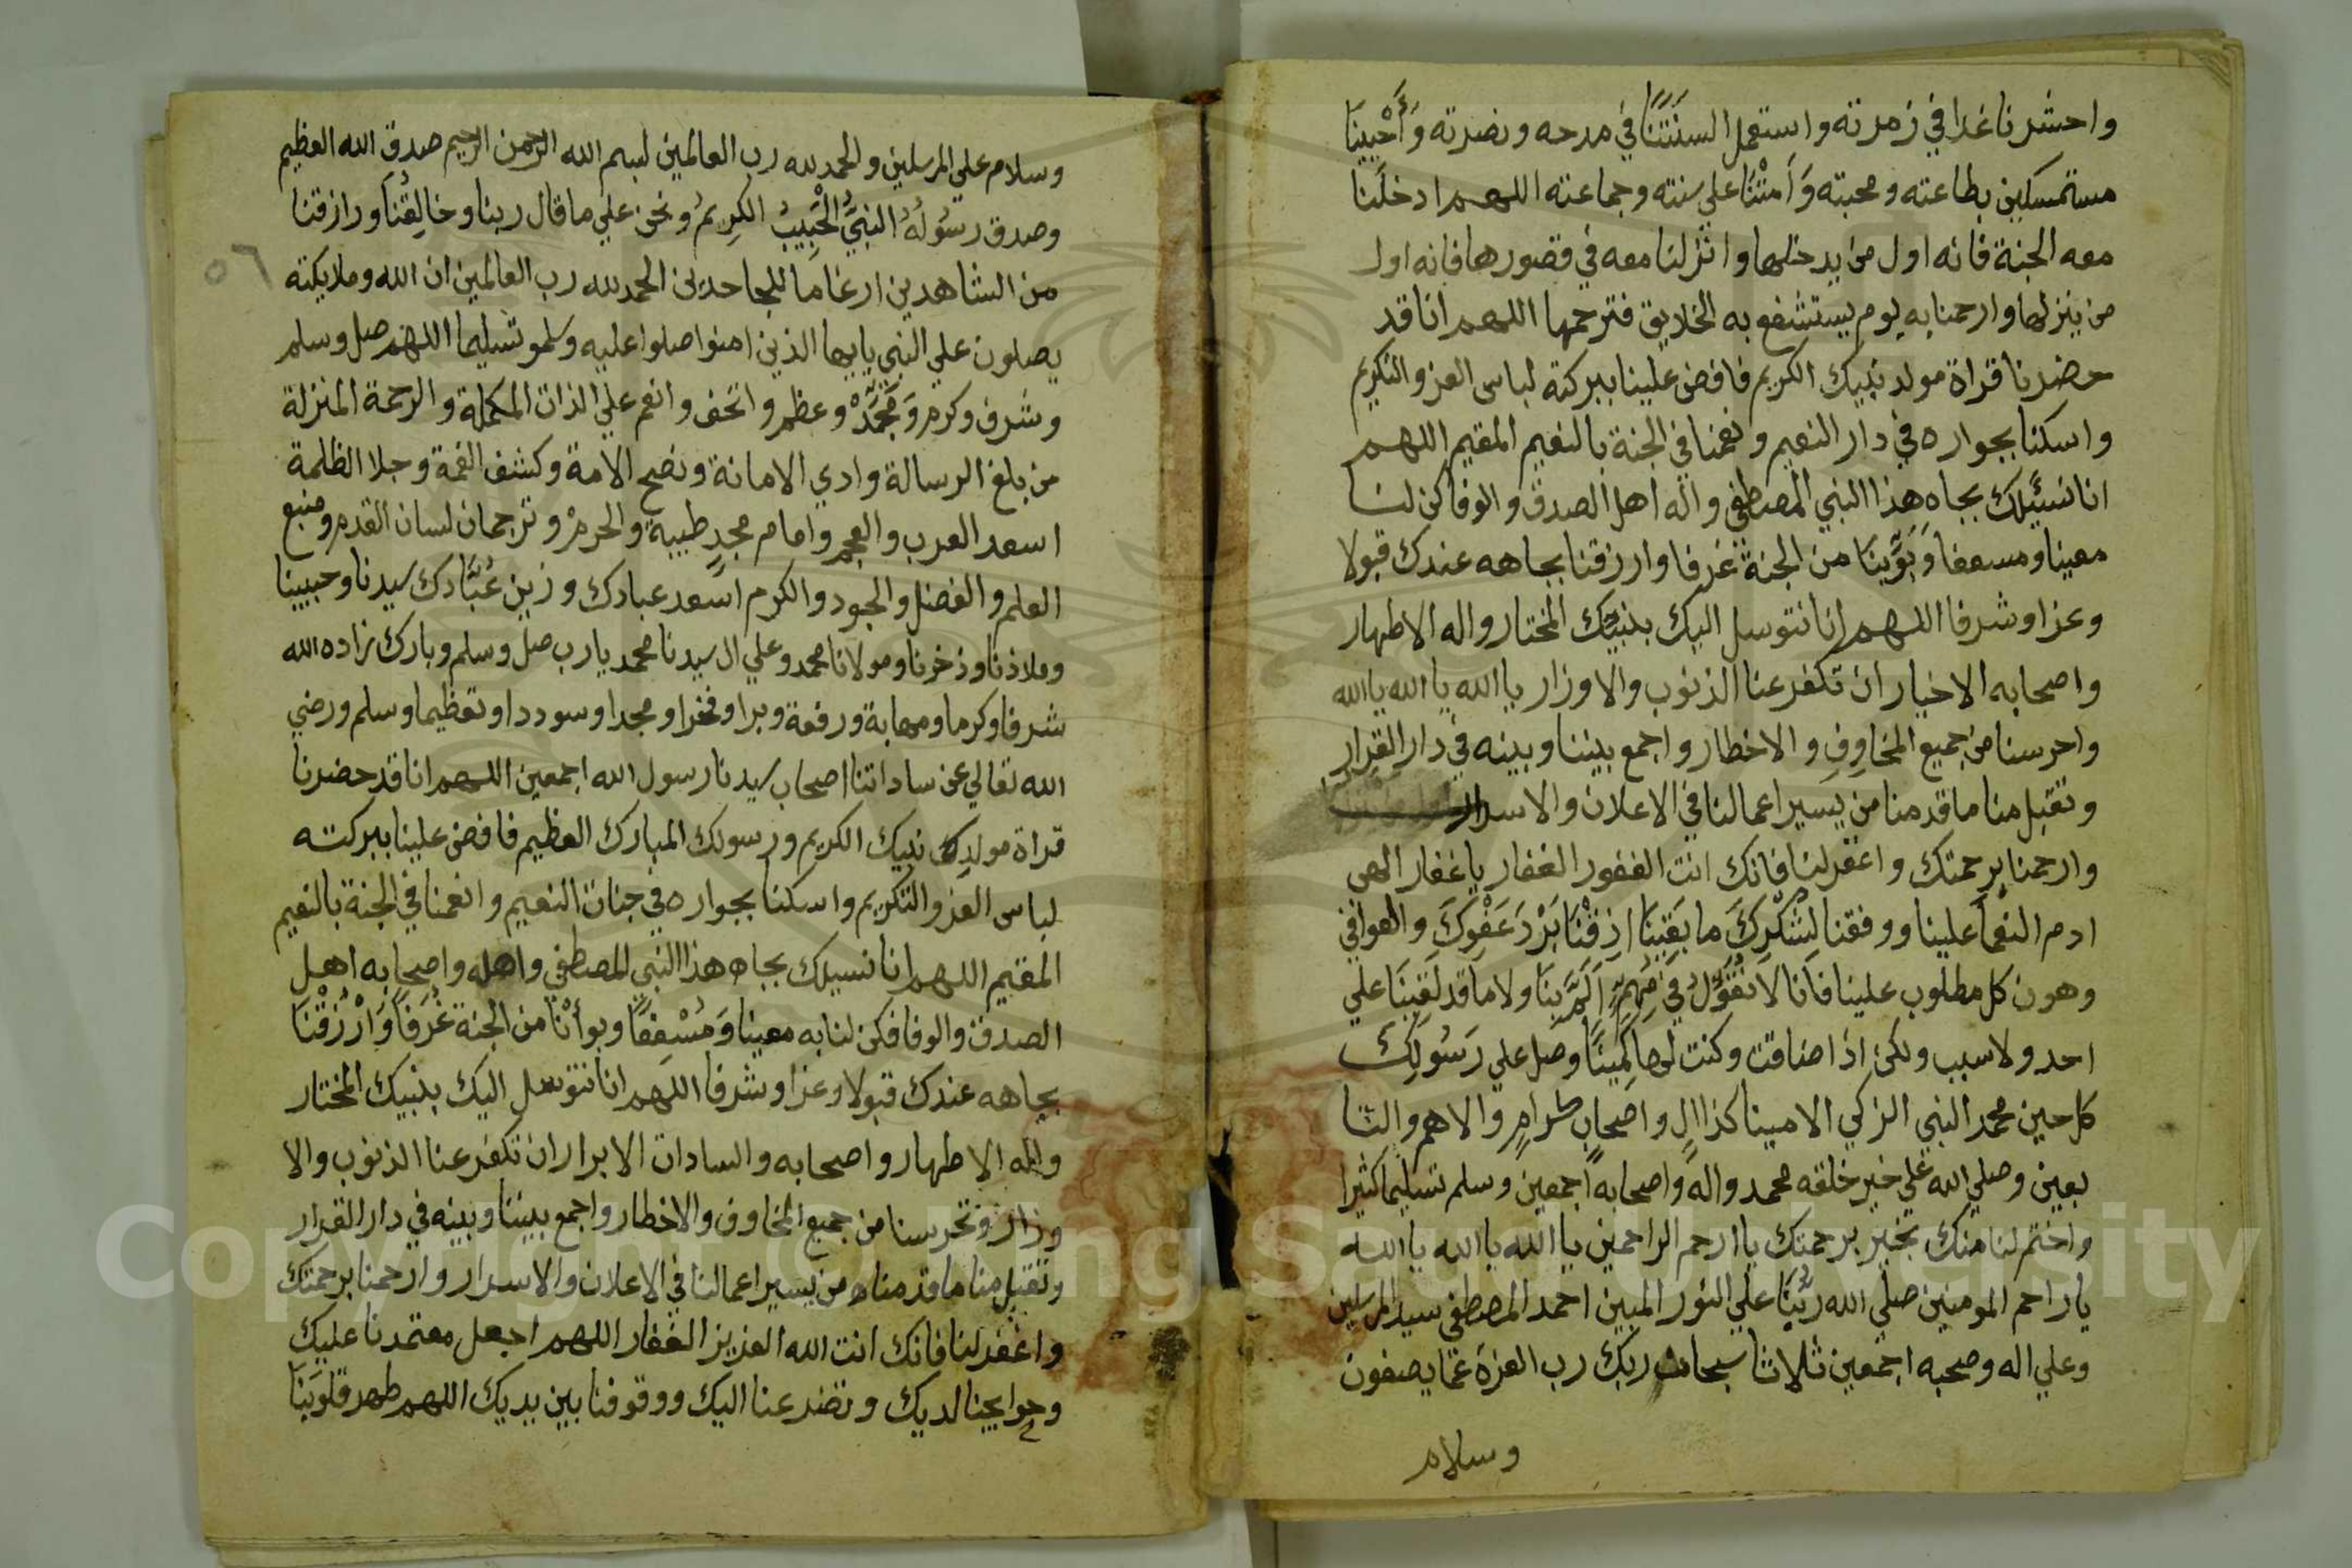 واحشرنا غدا في زمرته واستعمل السنتنا في مدحه ونصرته وأحينا
مستمسكين بطاعته ومحبته وأمتنا علي سنته وجماعته اللهم ادخلنا
معه الجنة فانه اول من يدخلها وانزلنا معه في قصورها فانه اول
من ينزلها وارحمنا به يوم يستشفع به الخلايق فترحمها اللهم انا قد
حضرنا قراة مولد نبيك الكريم فافض علينا ببركته لباس العز والتكريم
واسكنا بجواره في دار النعيم ونعمنا في الجنة بالنعيم المقيم اللهم
انا نسئلك بجاه هذا النبي المصطفي واله اهل الصدق والوفا كن لنا
معينا ومسعفا وبوينا من الجنة غرفا وارزقنا بجاهه عندك قبولا
وعزا وشرفا اللهم إنا نتوسل اليك بنبيك المختار واله الاطهار
واصحابه الاخيار ان تكفر عنا الذنوب والاوزار يا الله يا الله يا الله
واحرسنا من جميع المخاوف والاخطار واجمع بيننا وبينه في دار القرار
وتقبل منا ما قدمنا من يسير اعمالنا في الاعلان والاسرار
وارحمنا برحمتك واغفر لنا فانك انت الغفور الغفار يا غفار الهي
ادم النعما علينا ووفقنا لشكرك ما بقينا اذقنا برد عفوك والعوافي
وهون كل مطلوب علينا فانا لا نعول في مهم الم بنا ولا ما قد لقينا علي
احد ولا سبب ولكن اذا ضاقت وكنت لها كمينا وصل علي رسولك
كل حين محمد النبي الزكي الامينا كذا ال واصحاب كرام والاهم والتا
بعين وصلي الله علي خير خلقه محمد واله واصحابه اجمعين وسلم تسليما كثيرا
واختم لنا منك بخير برحمتك يا ارحم الراحمين يا الله يا الله يا الله
يا راحم المومنين صلي الله ربنا علي النور المبين احمد المصطفي سيد المرسلين
وعلي اله وصحبه اجمعين ثلاثا سبحان ربك رب العزة عما يصفون
وسلام
وسلام علي المرسلين والحمد لله رب العالمين بسم الله الرحمن الرحيم صدق الله العظيم
وصدق رسوله النبي الحبيب الكريم ونحن علي ما قال ربنا وخالقنا ورازقنا
من الشاهدين ارغاما للجاحدين الحمد لله رب العالمين ان الله وملايكته
٥٦
يصلون علي النبي يايها الذين امنوا صلوا عليه وسلمو تسليما اللهم صل وسلم
وشرف وكرم ومجد وعظم واتحف وانعم علي الذات المكملة والرحمة المنزلة
من بلغ الرسالة وادي الامانة ونصح الامة وكشف الغمة وجلا الظلمة
اسعد العرب والعجم وامام مجد طيبة والحرم وترجمان لسان القدم ومنبع
العلم والفضل والجود والكرم اسعد عبادك وزين عبادك سيدنا وحبيبنا
وملاذنا وذخرنا ومولانا محمد وعلي ال سيدنا محمد يا رب صل وسلم وبارك زاده الله
شرفا وكرما ومهابة ورفعة وبرا وفخرا ومجدا وسوددا وتعظيما وسلم ورضي
الله تعالي عن ساداتنا اصحاب سيدنا رسول الله اجمعين اللهم انا قد حضرنا
قراة مولد نبيك الكريم ورسولك المبارك العظيم فافض علينا ببركته
لباس العز والتكريم واسكنا بجواره في جنات النعيم وانعمنا في الجنة بالنعيم
المقيم اللهم انا نسيلك بجاه هذا النبي المصطفي واهله واصحابه اهل
الصدق والوفا فكن لنا به معينا ومسعفا وبوأنا من الجنة غرفا وارزقنا
بجاهه عندك قبولا وعزا وشرفا اللهم انا نتوسل اليك بنبيك المختار
واله الاطهار واصحابه والسادات الابرار ان تكفر عنا الذنوب والا
وزار وتحرسنا من جميع المخاوف والاخطار واجمع بيننا وبينه في دار القرار
وتقبل منا ما قدمناه من يسير اعمالنا في الاعلان والاسرار وارحمنا برحمتك
واغفر لنا فانك انت الله العزيز الغفار اللهم اجعل معتمدنا عليك
وحوايجنا لديك وتضرعنا اليك ووقوفنا بين يديك اللهم طهر قلوبنا
Copyright © King Saud University